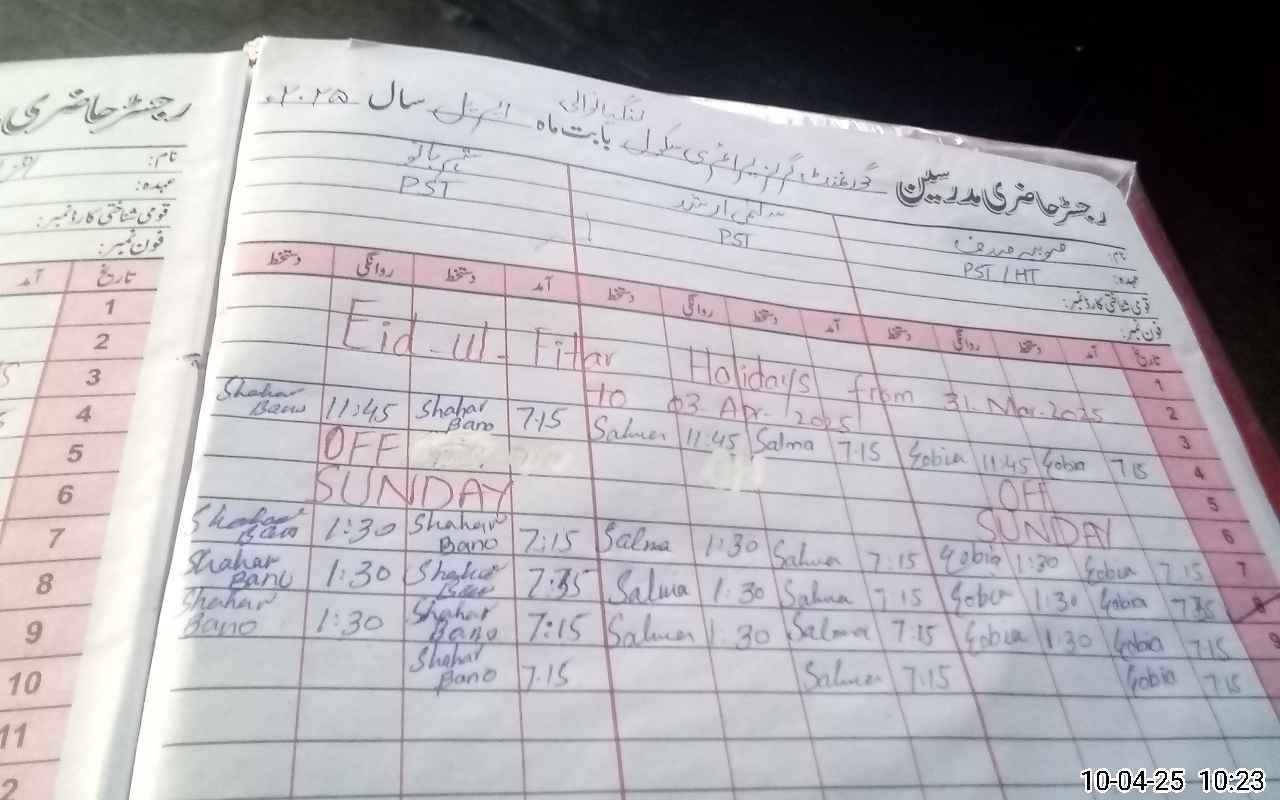 رجسٹر حاضری مدرسین گورنمنٹ گرلز پرائمری سکول بابت ماہ اپریل سال ۲۰۲۵ء
نام: شہر بانو
عہدہ: PST / HT PST PST
قومی شناختی کارڈ نمبر:
فون نمبر:
تاریخ آمد دستخط روانگی دستخط آمد دستخط روانگی دستخط آمد دستخط روانگی دستخط
1 Eid-ul-Fitar Holidays from 31-Mar-2025
2 to 03-Apr-2025
3
4 7:15 Gobia 11:45 Gobia 7:15 Salma 11:45 Salma 7:15 Shahar Bano 11:45 Shahar Bano
5 OFF OFF
6 SUNDAY SUNDAY
7 7:15 Gobia 1:30 Gobia 7:15 Salma 1:30 Salma 7:15 Shahar Bano 1:30 Shahar Bano
8 Gobia 1:30 Gobia 7:15 Salma 1:30 Salma Shahar Bano 1:30 Shahar Bano
9 7:15 Gobia 1:30 Gobia 7:15 Salma 1:30 Salma 7:15 Shahar Bano 1:30 Shahar Bano
7:15 Gobia 7:15 Salma 7:15 Shahar Bano
رجسٹر حاضری
نام:
عہدہ:
قومی شناختی کارڈ نمبر:
فون نمبر:
تاریخ آمد
1
2
3
4
5
6
7
8
9
10
11
2
10-04-25 10:23